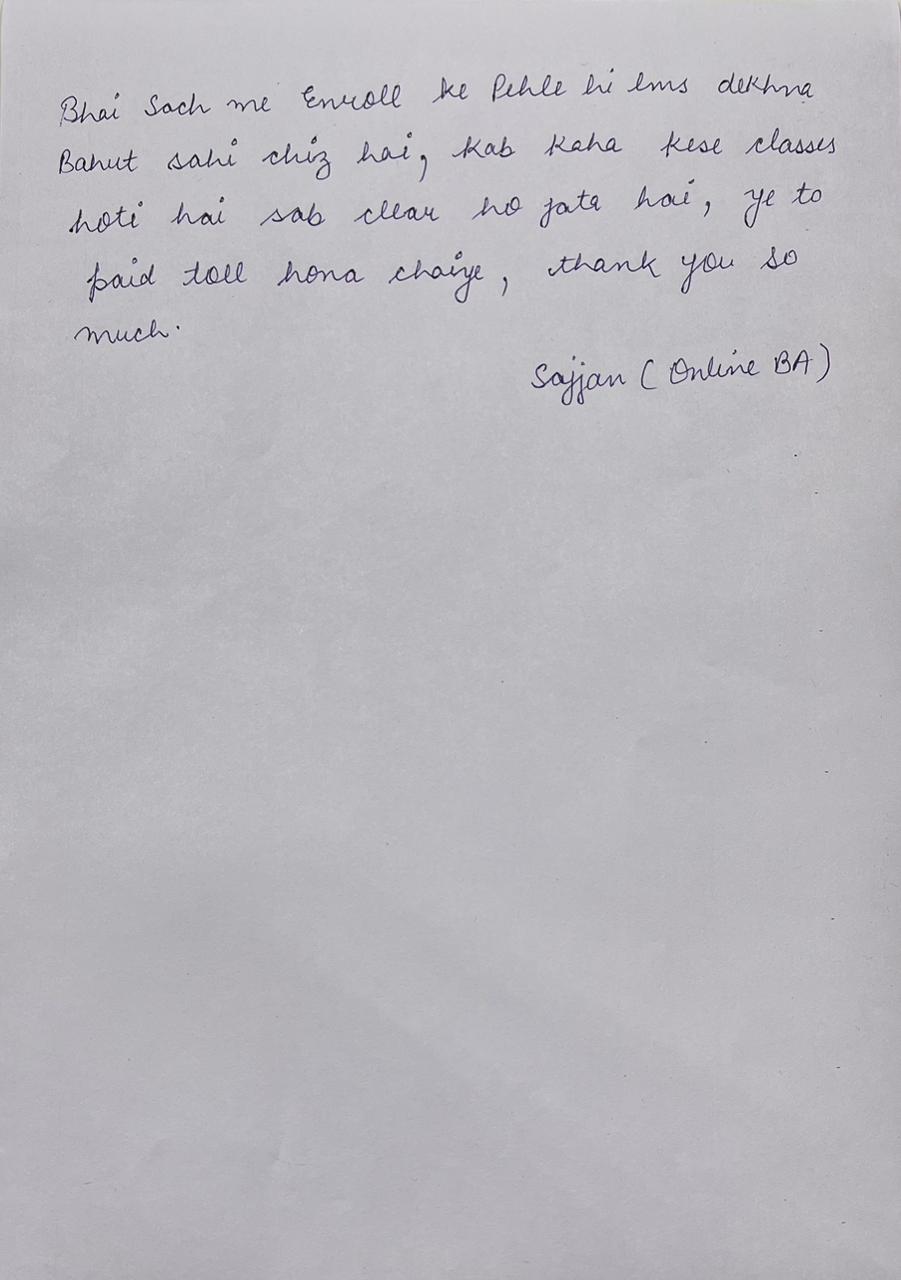 Bhai Sach me Enroll ke Pehle hi lms dekhna
Bahut sahi chiz hai, kab kaha kese classes
hoti hai sab clear ho jata hai, ye to
paid toll hona chaiye, thank you so
much.
Sajjan (Online BA)